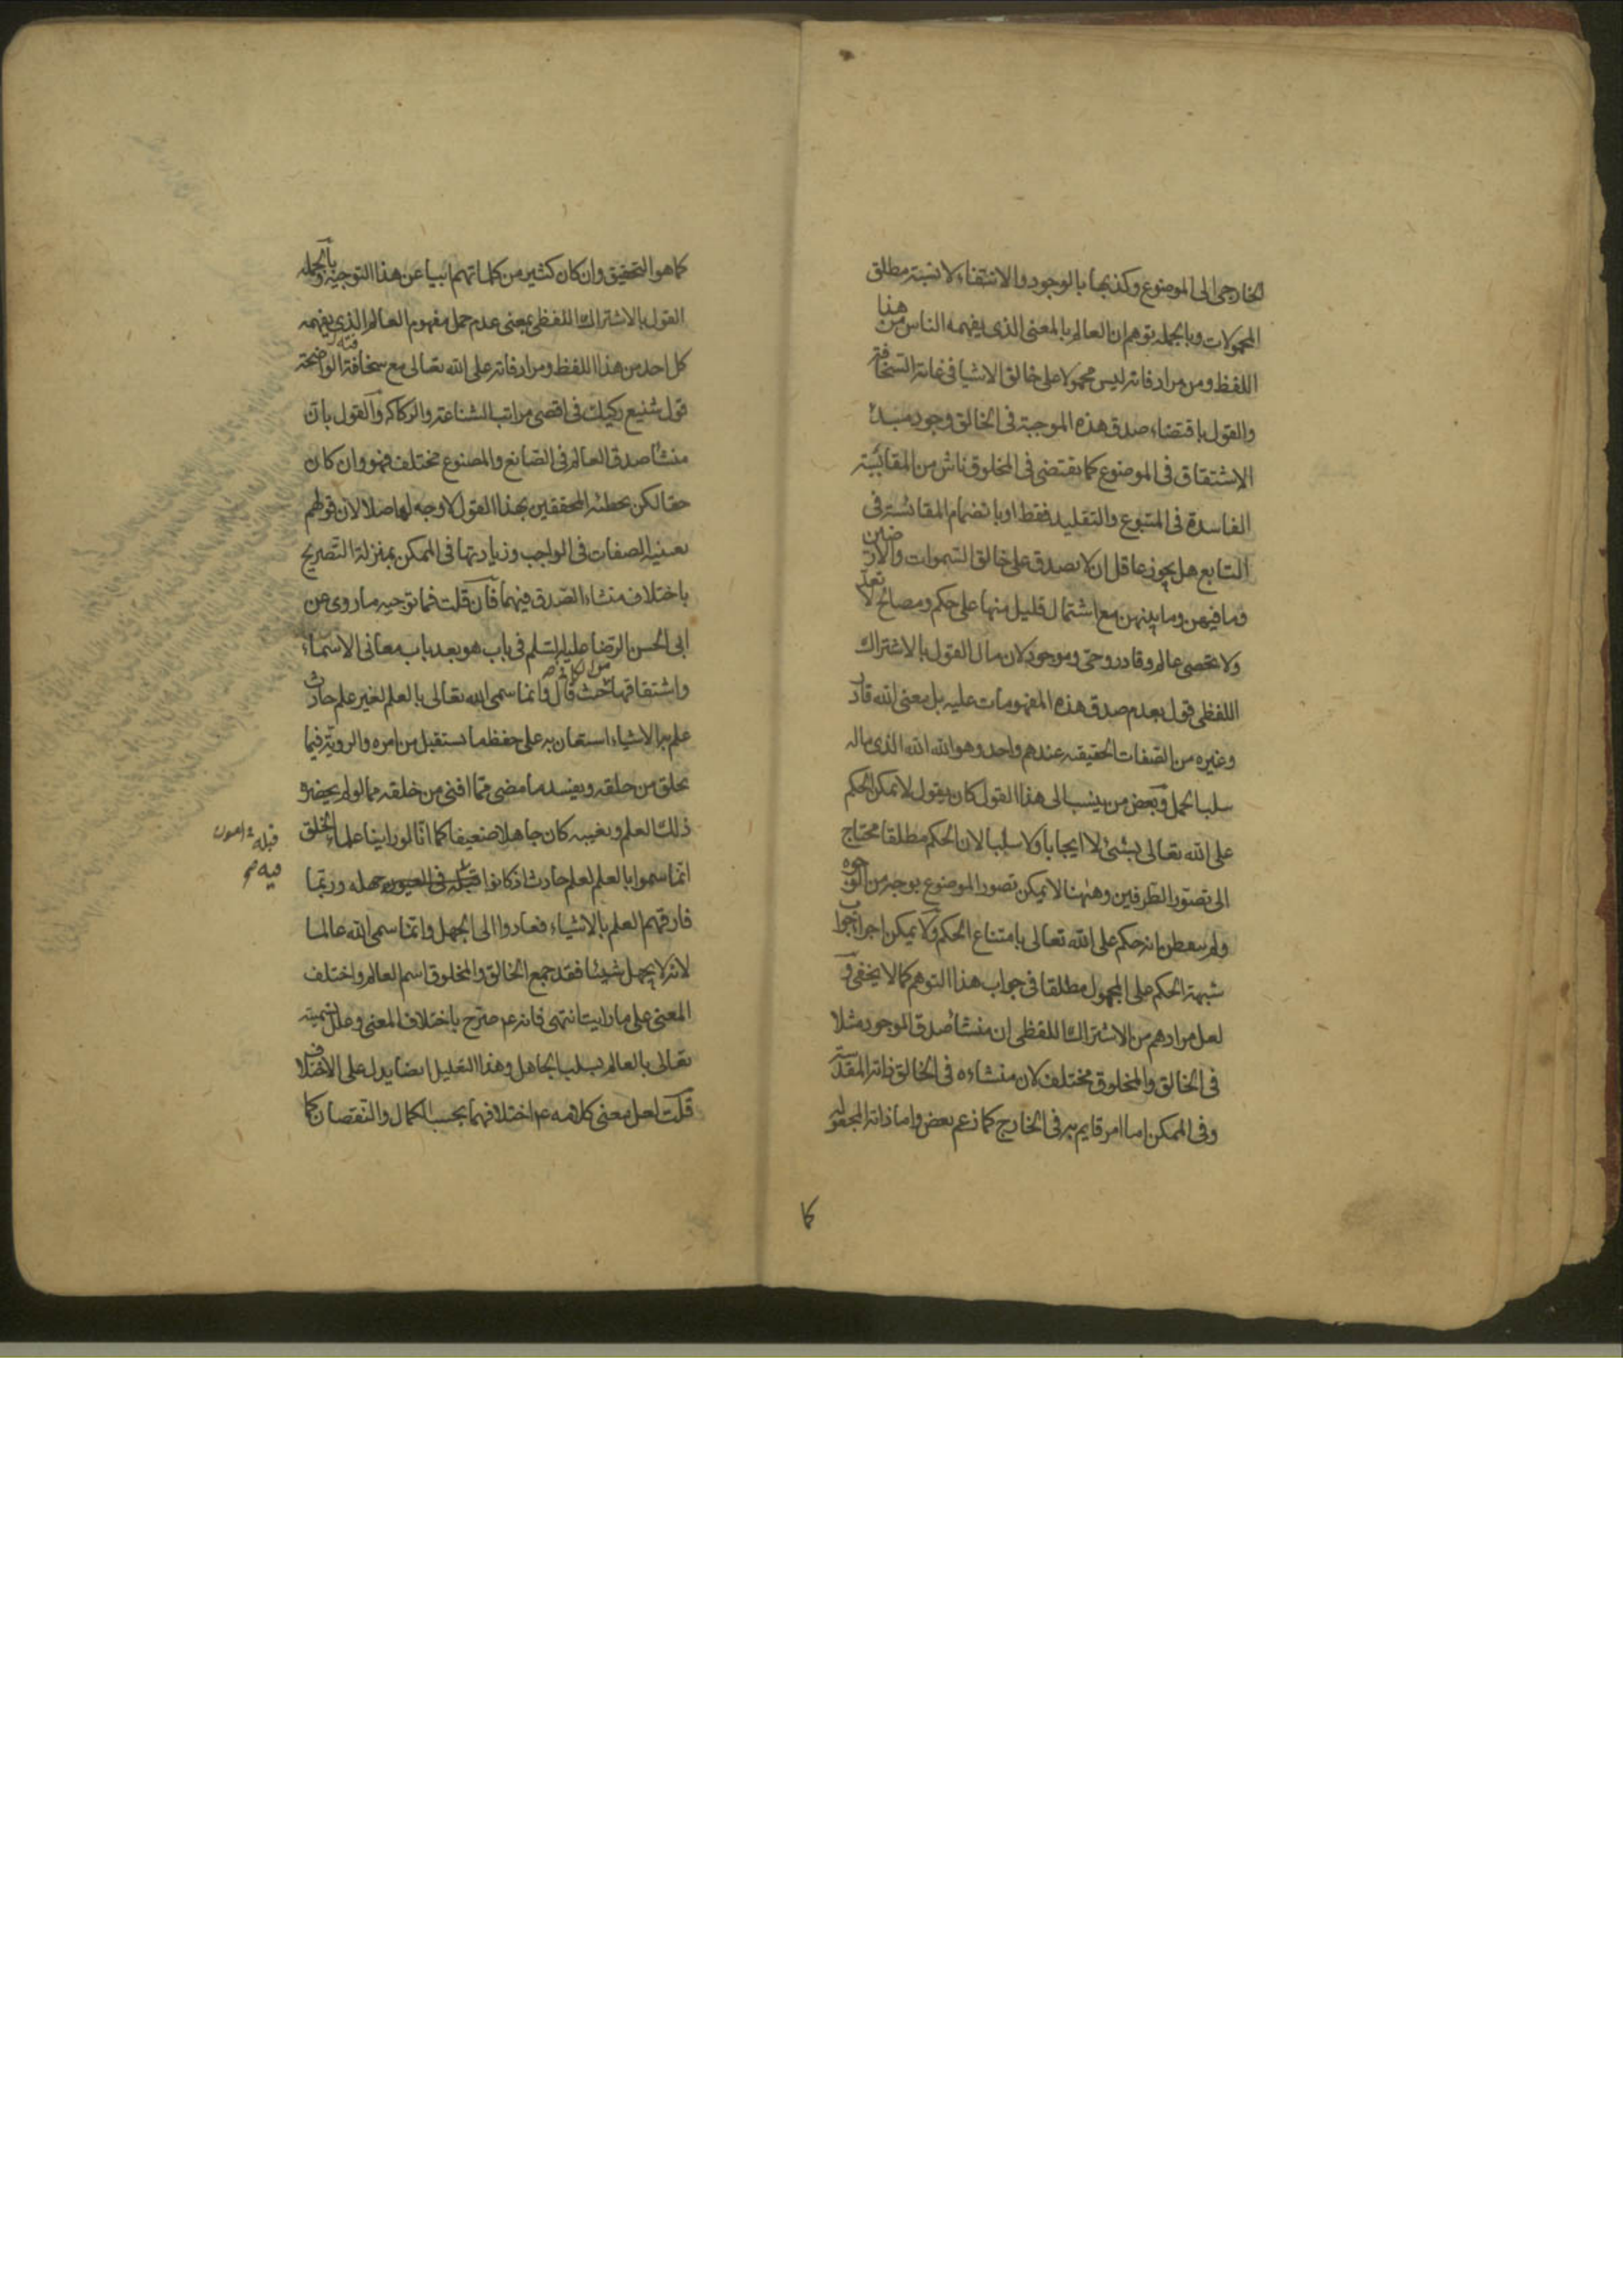 الخارجى الى الموضوع وكذبها بالوجود والانتفاء لا نسبة مطلق
المحمولات وبالجملة توهم ان العالم بالمعنى الذى يفهمه الناس من هذا
اللفظ ومن مرادفاته ليس محمولا على خالق الاشيا فى غاية السخافة
والقول باقتضاء صدق هذه الموجبة فى الخالق وجود مبدء
الاشتقاق فى الموضوع كما يقتضى فى المخلوق ناش من المقائسة
الفاسدة فى المتبوع والتقليد فقط او بانضمام المقائسة فى
التابع هل يجوز عاقل ان لا يصدق على خالق السموات والارضين
وما فيهن وما بينهن مع اشتمال قليل منها على حكم ومصالح لا تعد
ولا تحصى عالم وقادر وحى وموجود لان مال القول بالاشتراك
اللفظى قول بعدم صدق هذه المفهومات عليه بل معنى الله قادر
وغيره من الصفات الحقيقيه عندهم واحد وهو الله الله الذى ماله
سلب الحمل وبعض من ينسب الى هذا القول كان يقول لا يمكن الحكم
على الله تعالى بشئ لا ايجابا ولا سلبا لان الحكم مطلقا محتاج
الى تصور الطرفين وههنا لا يمكن تصور الموضوع بوجه من الوجوه
ولم يتفطن بانه حكم على الله تعالى بامتناع الحكم ولا يمكن اجراء جواب
شبهة الحكم على المجهول مطلقا فى جواب هذا التوهم كما لا يخفى و
لعل مرادهم من الاشتراك اللفظى ان منشأ صدق الموجود مثلا
فى الخالق والمخلوق مختلف لان منشاءه فى الخالق ذاته المقدسة
وفى الممكن اما امر قايم به فى الخارج كما زعم بعض واما ذاته المجعولة
كما
كما هو التحقيق وان كان كثير من كلماتهم ابيا عن هذا التوجيه وبالجمله
القول بالاشتراك اللفظى بمعنى عدم حمل مفهوم العالم الذى يفهمه
كل احد من هذا اللفظ ومرادفاته على الله تعالى مع سخافته الواضحة
قول شنيع ركيك فى اقصى مراتب الشناعة والركاكه والقول بان
منشأ صدق العالم فى الصانع والمصنوع مختلف فهو وان كان
حقا لكن تخطئة المحققين بهذا القول لا وجه لها اصلا لان قولهم
بعينية الصفات فى الواجب وزيادتها فى الممكن بمنزلة التصريح
باختلاف منشاء الصدق فيهما فان قلت فما توجيه ما روى عن
ابى الحسن الرضا عليه السلم فى باب هو بعد باب معانى الاسماء
واشتقاقها من الكافى حيث قال وانما سمى الله تعالى بالعلم لغير علم حادث
علم به الاشياء استعان به على حفظ ما يستقبل من امره والروية فيما
يخلق من خلقه ويفسد ما مضى مما افنى من خلقه مما لو لم يحضره
ذلك العلم ويغيبه كان جاهلا ضعيفا كما انا لو راينا علماء الخلق
انما سموا بالعلم لعلم حادث اذ كانوا جهله وربما
قبله
فيه صح
فارقهم العلم بالاشياء فعادوا الى الجهل وانما سمى الله عالما
لانه لا يجهل شيئا فقد جمع الخالق والمخلوق اسم العالم واختلف
المعنى على ما رايت انتهى فانه ع صرح باختلاف المعنى وعلل تسميته
تعالى بالعالم بسلب الجاهل وهذا التعليل ايضا يدل على الاختلاف
قلت لعل معنى كلامه ع اختلافهما بحسب الكمال والنقصان كما